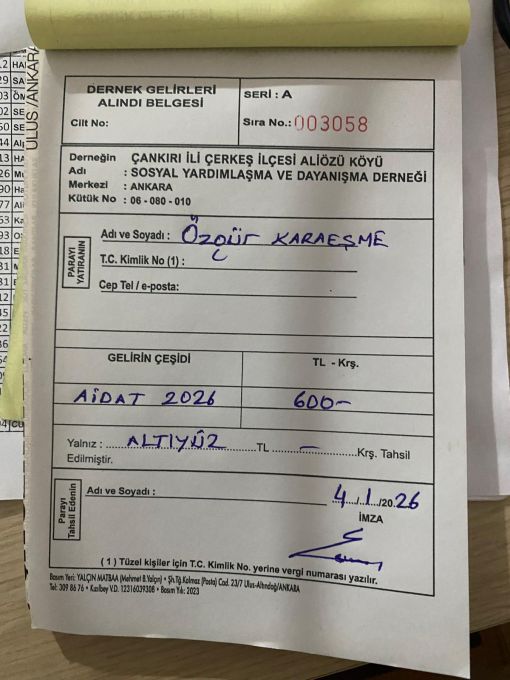 ULUS/ANKARA
DERNEK GELİRLERİ
ALINDI BELGESİ
Cilt No:
SERİ : A
Sıra No.: 003058
Derneğin
Adı : ÇANKIRI İLİ ÇERKEŞ İLÇESİ ALİÖZÜ KÖYÜ
SOSYAL YARDIMLAŞMA VE DAYANIŞMA DERNEĞİ
Merkezi : ANKARA
Kütük No : 06 - 080 - 010
PARAYI YATIRANIN
Adı ve Soyadı : Özgür KARAEŞME
T.C. Kimlik No (1) :
Cep Tel / e-posta:
GELİRİN ÇEŞİDİ
TL - Krş.
AİDAT 2026
600-
Yalnız : ALTIYÜZ TL - Krş. Tahsil
Edilmiştir.
Parayı Tahsil Edenin
Adı ve Soyadı :
4./1./2026
İMZA
( 1 ) Tüzel kişiler için T.C. Kimlik No. yerine vergi numarası yazılır.
Basım Yeri: YALÇIN MATBAA (Mehmet B.Yalçın) • Şh.Tğ.Kalmaz (Posta) Cad. 23/7 Ulus-Altındağ/ANKARA
Tel: 309 86 76 • Kızılbey V.D. 12316039308 • Basım Yılı: 2023